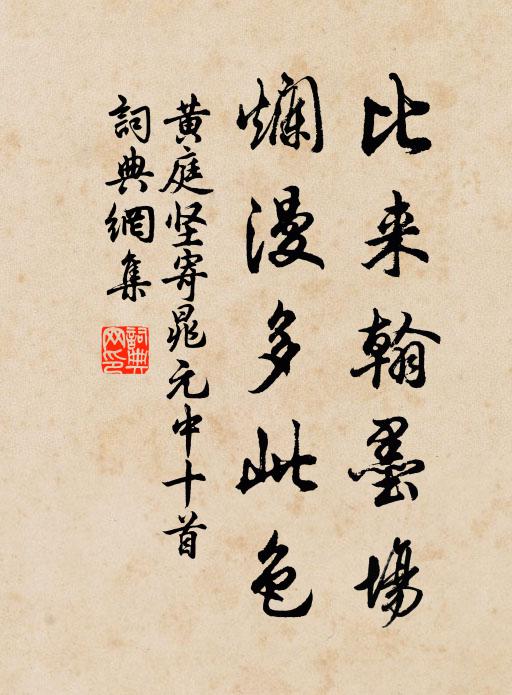 比来翰墨場
爛漫多此色
黄庭坚寄晁元中十首
詞典網集
詞典網印